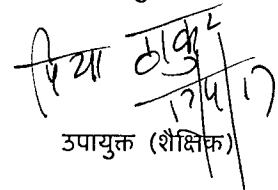 प्रिया ठाकुर
17/5/17
उपायुक्त (शैक्षिक)